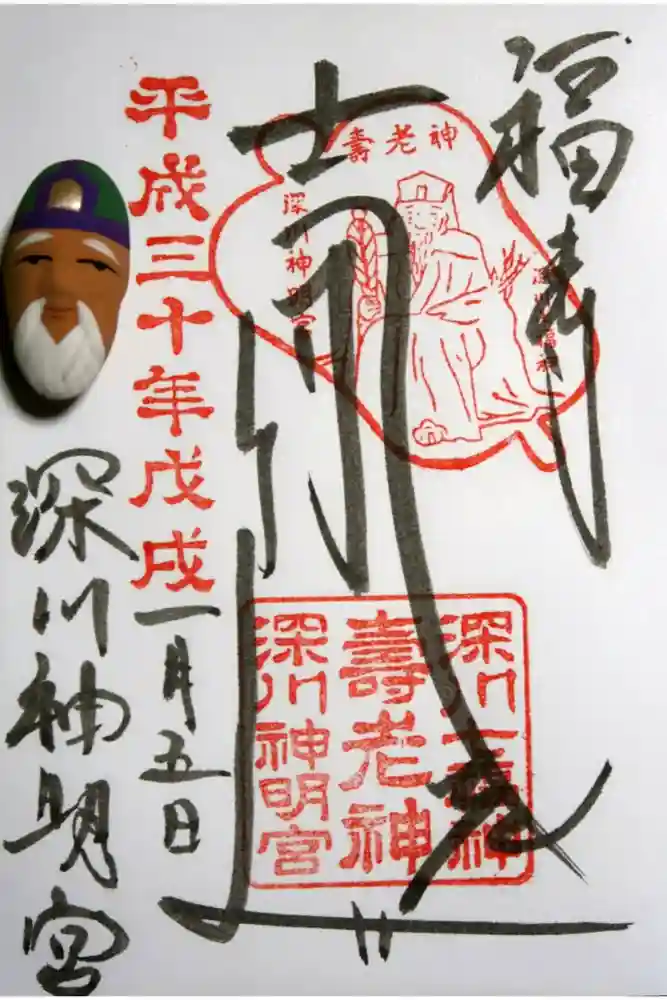 福寿
壽老神
深川七福神
深川神明宮
深川七福神
壽老神
深川神明宮
平成三十年戊戌一月五日
深川神明宮